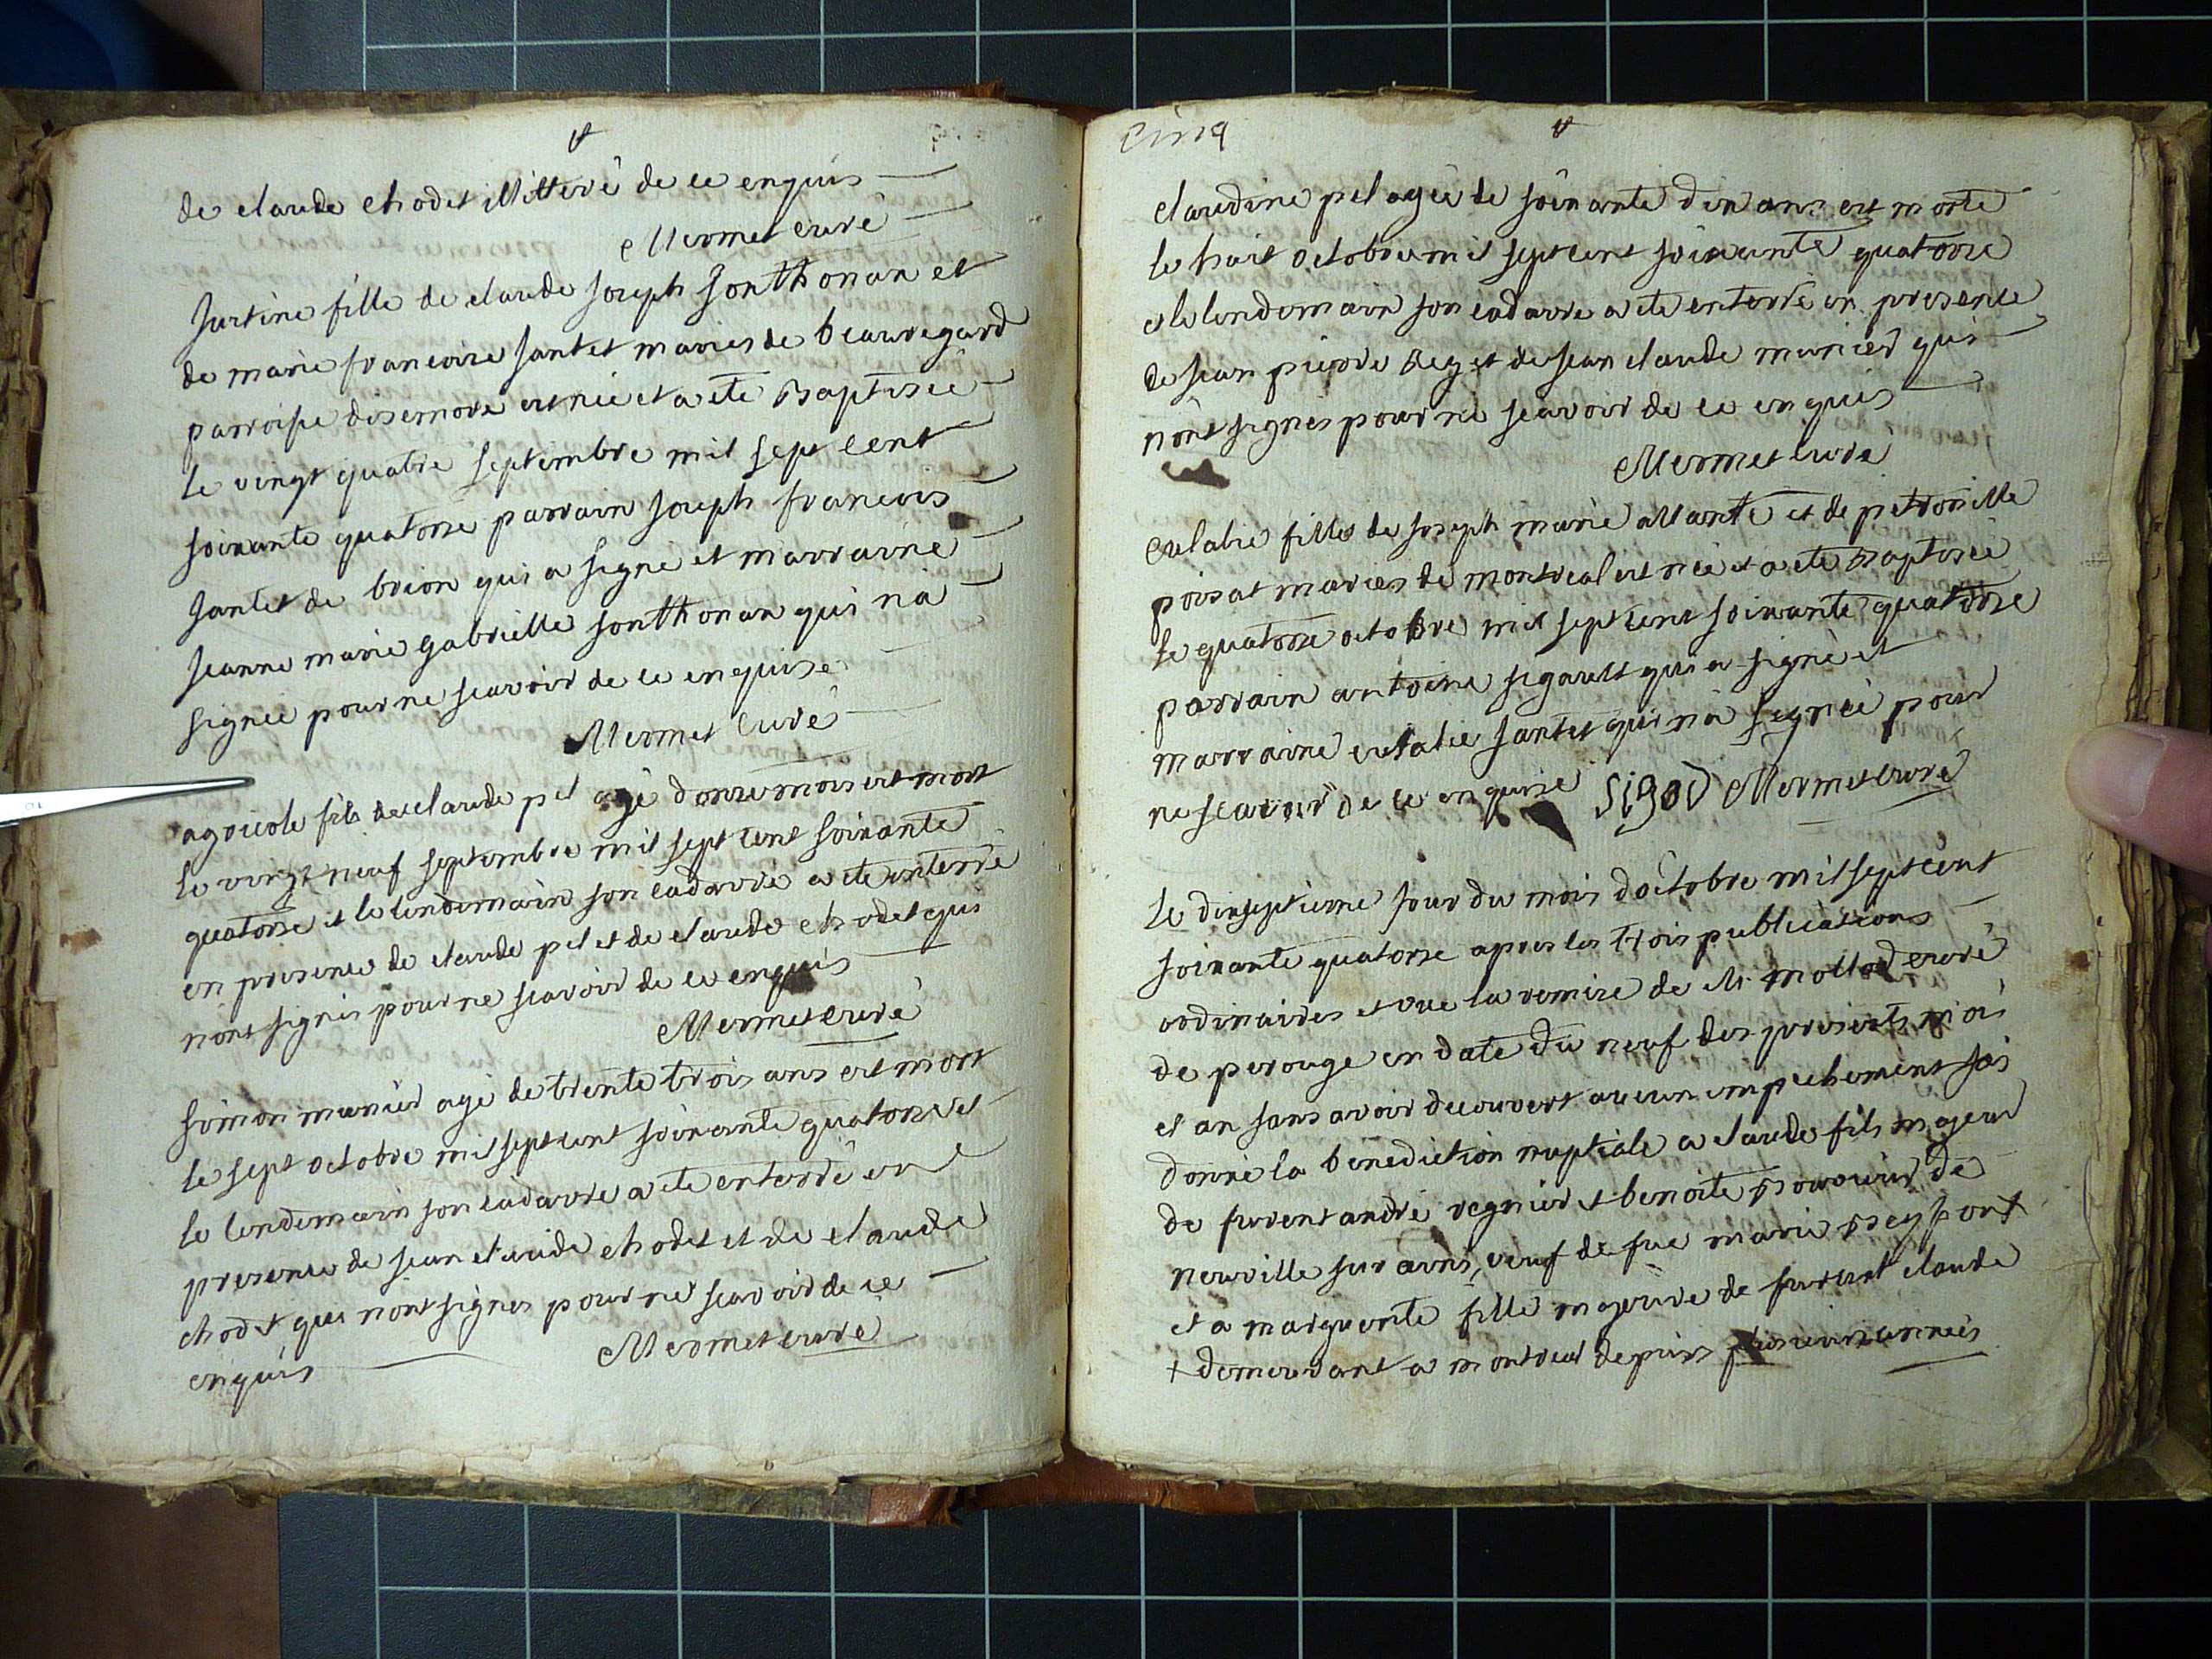 de claude chodet illitteré de ce enquis
Mermet curé
Justine fille de claude joseph sonthonax et
de marie francoise jantet mariés de beauregard
parroisse disernore est née et a ete Baptisée
le vingt quatre septembre mil sept cent
soixante quatorse parrain joseph francois
jantet de brion qui a signé et marraine
jeanne marie gabrielle sonthonax qui na
signée pour ne scavoir de ce enquise
Mermet Curé
agricole fils de claude pel agé donze mois est mort
le vingt neuf septembre mil sept cent soixante
quatorse et le lendemain son cadavre a ete enterré
en presence de claude pel et de claude chodet qui
nont signés pour ne scavoir de ce enquis
Mermet curé
simon munier agé de trente trois ans est mort
le sept octobre mil sept cent soixante quatorse et
le lendemain son cadavre a ete enterré en
presence de jean claude chodet et de claude
chodet qui nont signés pour ne scavoir de ce
enquis Mermet curé
cinq
claudine pel agée de soixante dix ans est morte
le huit octobre mil sept cent soixante quatorse
et le lendemain son cadavre a ete enterré en presence
de jean pierre Rey et de jean claude munier qui
n'ont signés pour ne scavoir de ce enquis
Mermet curé
eulalie fille de joseph marie allante et de petronille
poisat mariés de montreal est née et a ete Baptisée
le quatorse octobre mil sept cent soixante quatorse
parrain antoine sigault qui a signé et
marraine eulalie jantet qui na signée pour
ne scavoir de ce enquise Sigod Mermet curé
Le dixseptieme jour du mois d'octobre mil sept cent
soixante quatorse apres les trois publications
ordinaires et vue la remise de Mr mollod curé
de perouge en date du neuf des presents mois
et an sans avoir decouvert aucun empechement jai
donné la benediction nuptiale a claude fils majeur
de furent andré regnier et benoite Bouvier de
neuville sur ains, veuf de fue marie Beyson +
et a marguerite fille majeure de furent claude
+ demeurant a montreal depuis plusieurs années